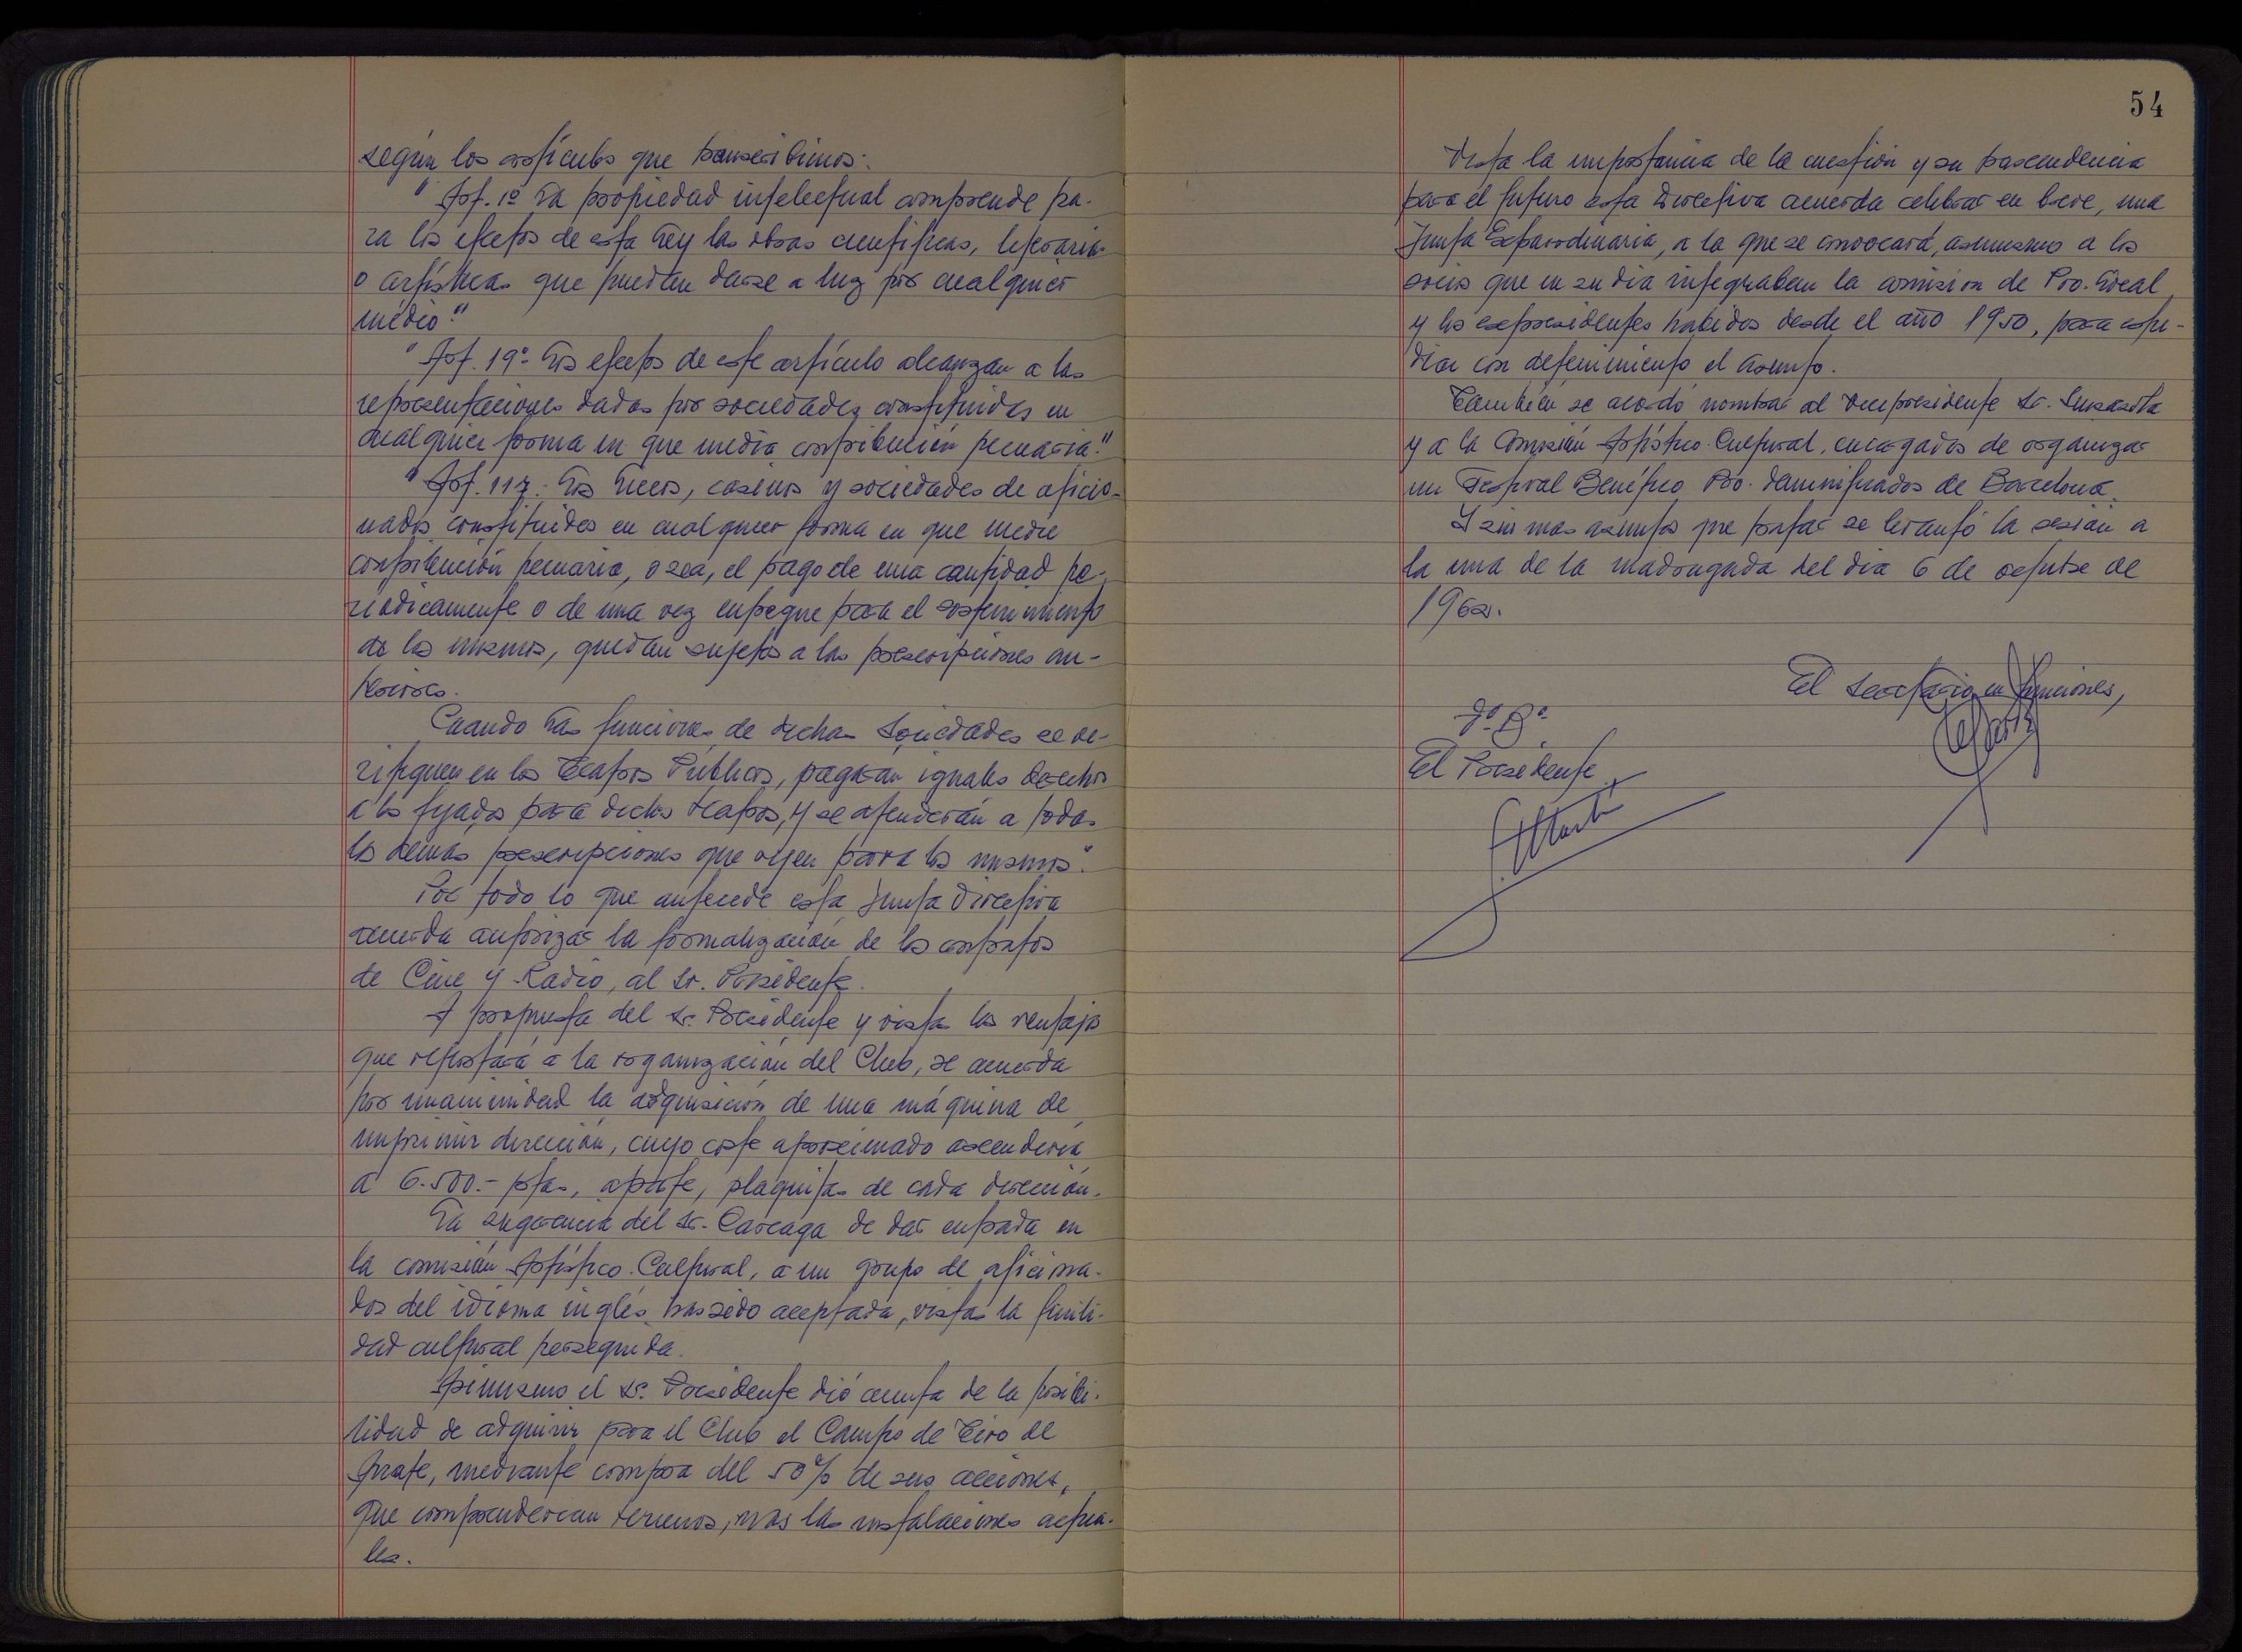 según los artículos que transcribimos:
" Art. 1º La propiedad intelectual comprende pa-
ra los efectos de esta Ley las obras científicas, literarias
o artísticas que puedan darse a luz por cualquier
medio."
" Art. 19º Los efectos de este artículo alcanzan a las
representaciones dadas por sociedades constituidas en
cualquier forma en que media contribución pecuaria."
" Art. 117. Los Liceos, casinos y sociedades de aficio-
nados constituidos en cualquier forma en que medie
contribución pecuaria, o sea, el pago de una cantidad pe-
riodicamente o de una vez entregue para el sostenimiento
de los mismos, quedan sujetos a las prescripciones an-
teriores.
Cuando las funciones de dichas Sociedades se ve-
rifiquen en los Teatros Públicos, pagaran iguales derechos
a los fijados para dichos teatros, y se atenderán a todas
las demás prescripciones que rigen para los mismos".
Por todo lo que antecede esta Junta Directiva
acuerda autorizar la formalización de los contratos
de Cine y Radio, al Sr. Presidente.
A propuesta del Sr. Presidente y vistas las ventajas
que reportará a la organización del Club, se acuerda
por unanimidad la adquisición de una máquina de
imprimir dirección, cuyo coste aproximado ascendería
a 6.500.- ptas, aparte, plaquitas de cada dirección.
La sugerencia del Sr. Careaga de dar entrada en
la comisión Artístico-Cultural, a un grupo de aficiona-
dos del idioma inglés, ha sido aceptada, vista la finali-
dad cultural perseguida.
Asimismo el Sr. Presidente dió cuenta de la posibi-
lidad de adquirir para el Club el Campo de Tiro de
mediante compra del 50% de sus acciones,
que comprenderian terrenos, mas las instalaciones actua-
les.
54
Vista la importancia de la cuestión y su trascendencia
para el futuro esta Directiva acuerda celebrar en breve, una
Junta Extraordinaria, a la que se convocará, asimismo a los
socios que en su dia integraban la comision de Pro. Local
y los expresidentes habidos desde el año 1950, para estu-
diar con detenimiento el asunto.
También se acordó nombrar al Vicepresidente Sr.
y a la Comisión Artístico-Cultural, encargados de organizar
un Festival Benéfico Pro. damnificados de Barcelona.
Y sin mas asuntos que tratar se levantó la sesión a
la una de la madrugada del dia 6 de octubre de
1962.
El Secretario en funciones,
Vº Bº
El Presidente